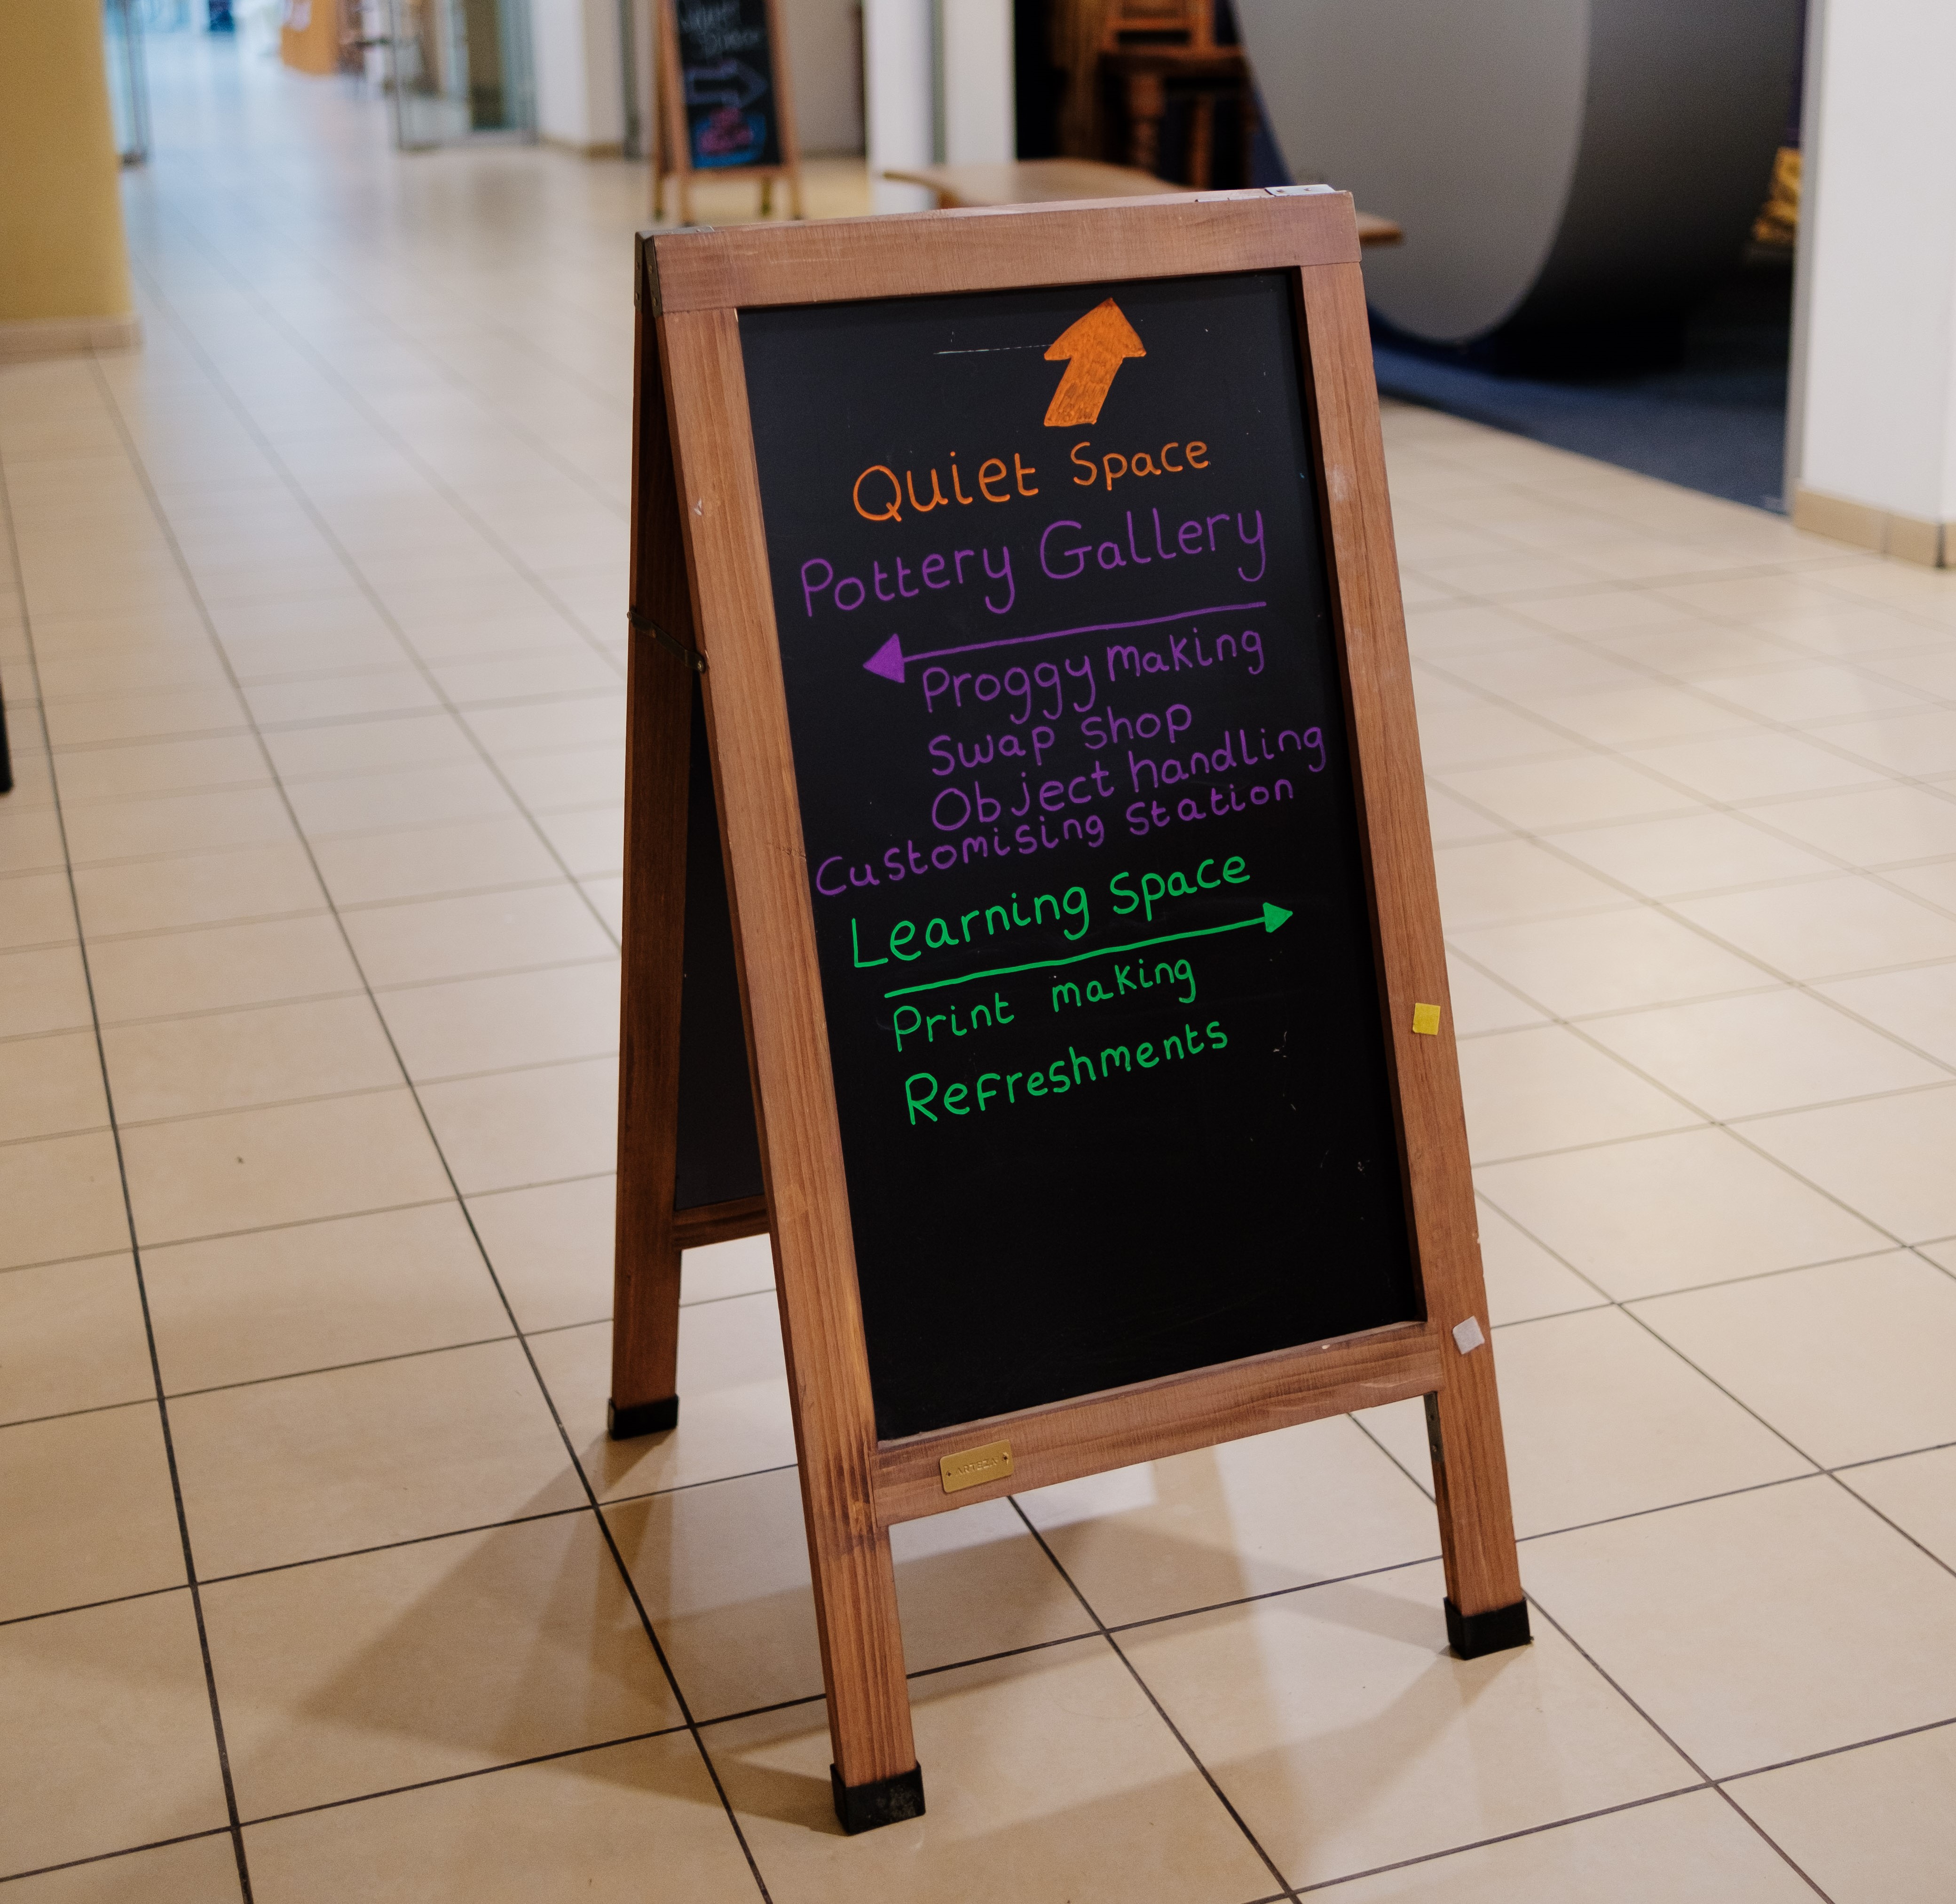 Quiet Space
Pottery Gallery
Proggy making
Swap shop
Object handling
Customising station
Learning space
Print making
Refreshments